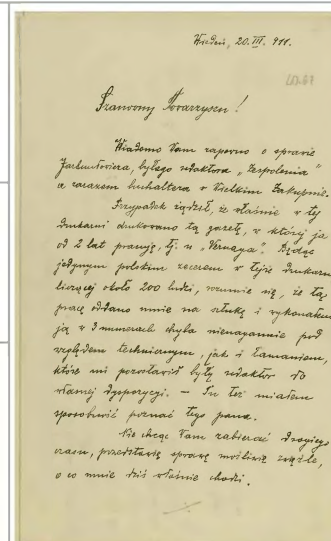 Wiedeń, 20.III. 911.
Szanowny Towarzyszu!
Wiadomo Wam zapewno o sprawie
byłego redaktora „Zespolenia"
a zarazem buchaltera w Wielkim Zakupnie.
Przypadek rządził, że właśnie w tej
drukarni drukowano tą gazetę, w której ja
od 2 lat pracuję, tj. u „Vernaya". Będąc
jedynym polskim zecerem w tejże drukarni
liczącej około 200 ludzi, rozumie się, że tą
pracę oddano mnie na sztukę i wykonałem
ją w 3 numerach chyba nienagannie pod
względem technicznym, jak i łamaniem,
które mi pozostawił były redaktor do
własnej dyspozycji. — Tu też miałem
sposobność poznać tego pana.
Nie chcąc Wam zabierać drogiego
czasu, przedstawię sprawę możliwie zwięźle,
o co mnie dziś właśnie chodzi.